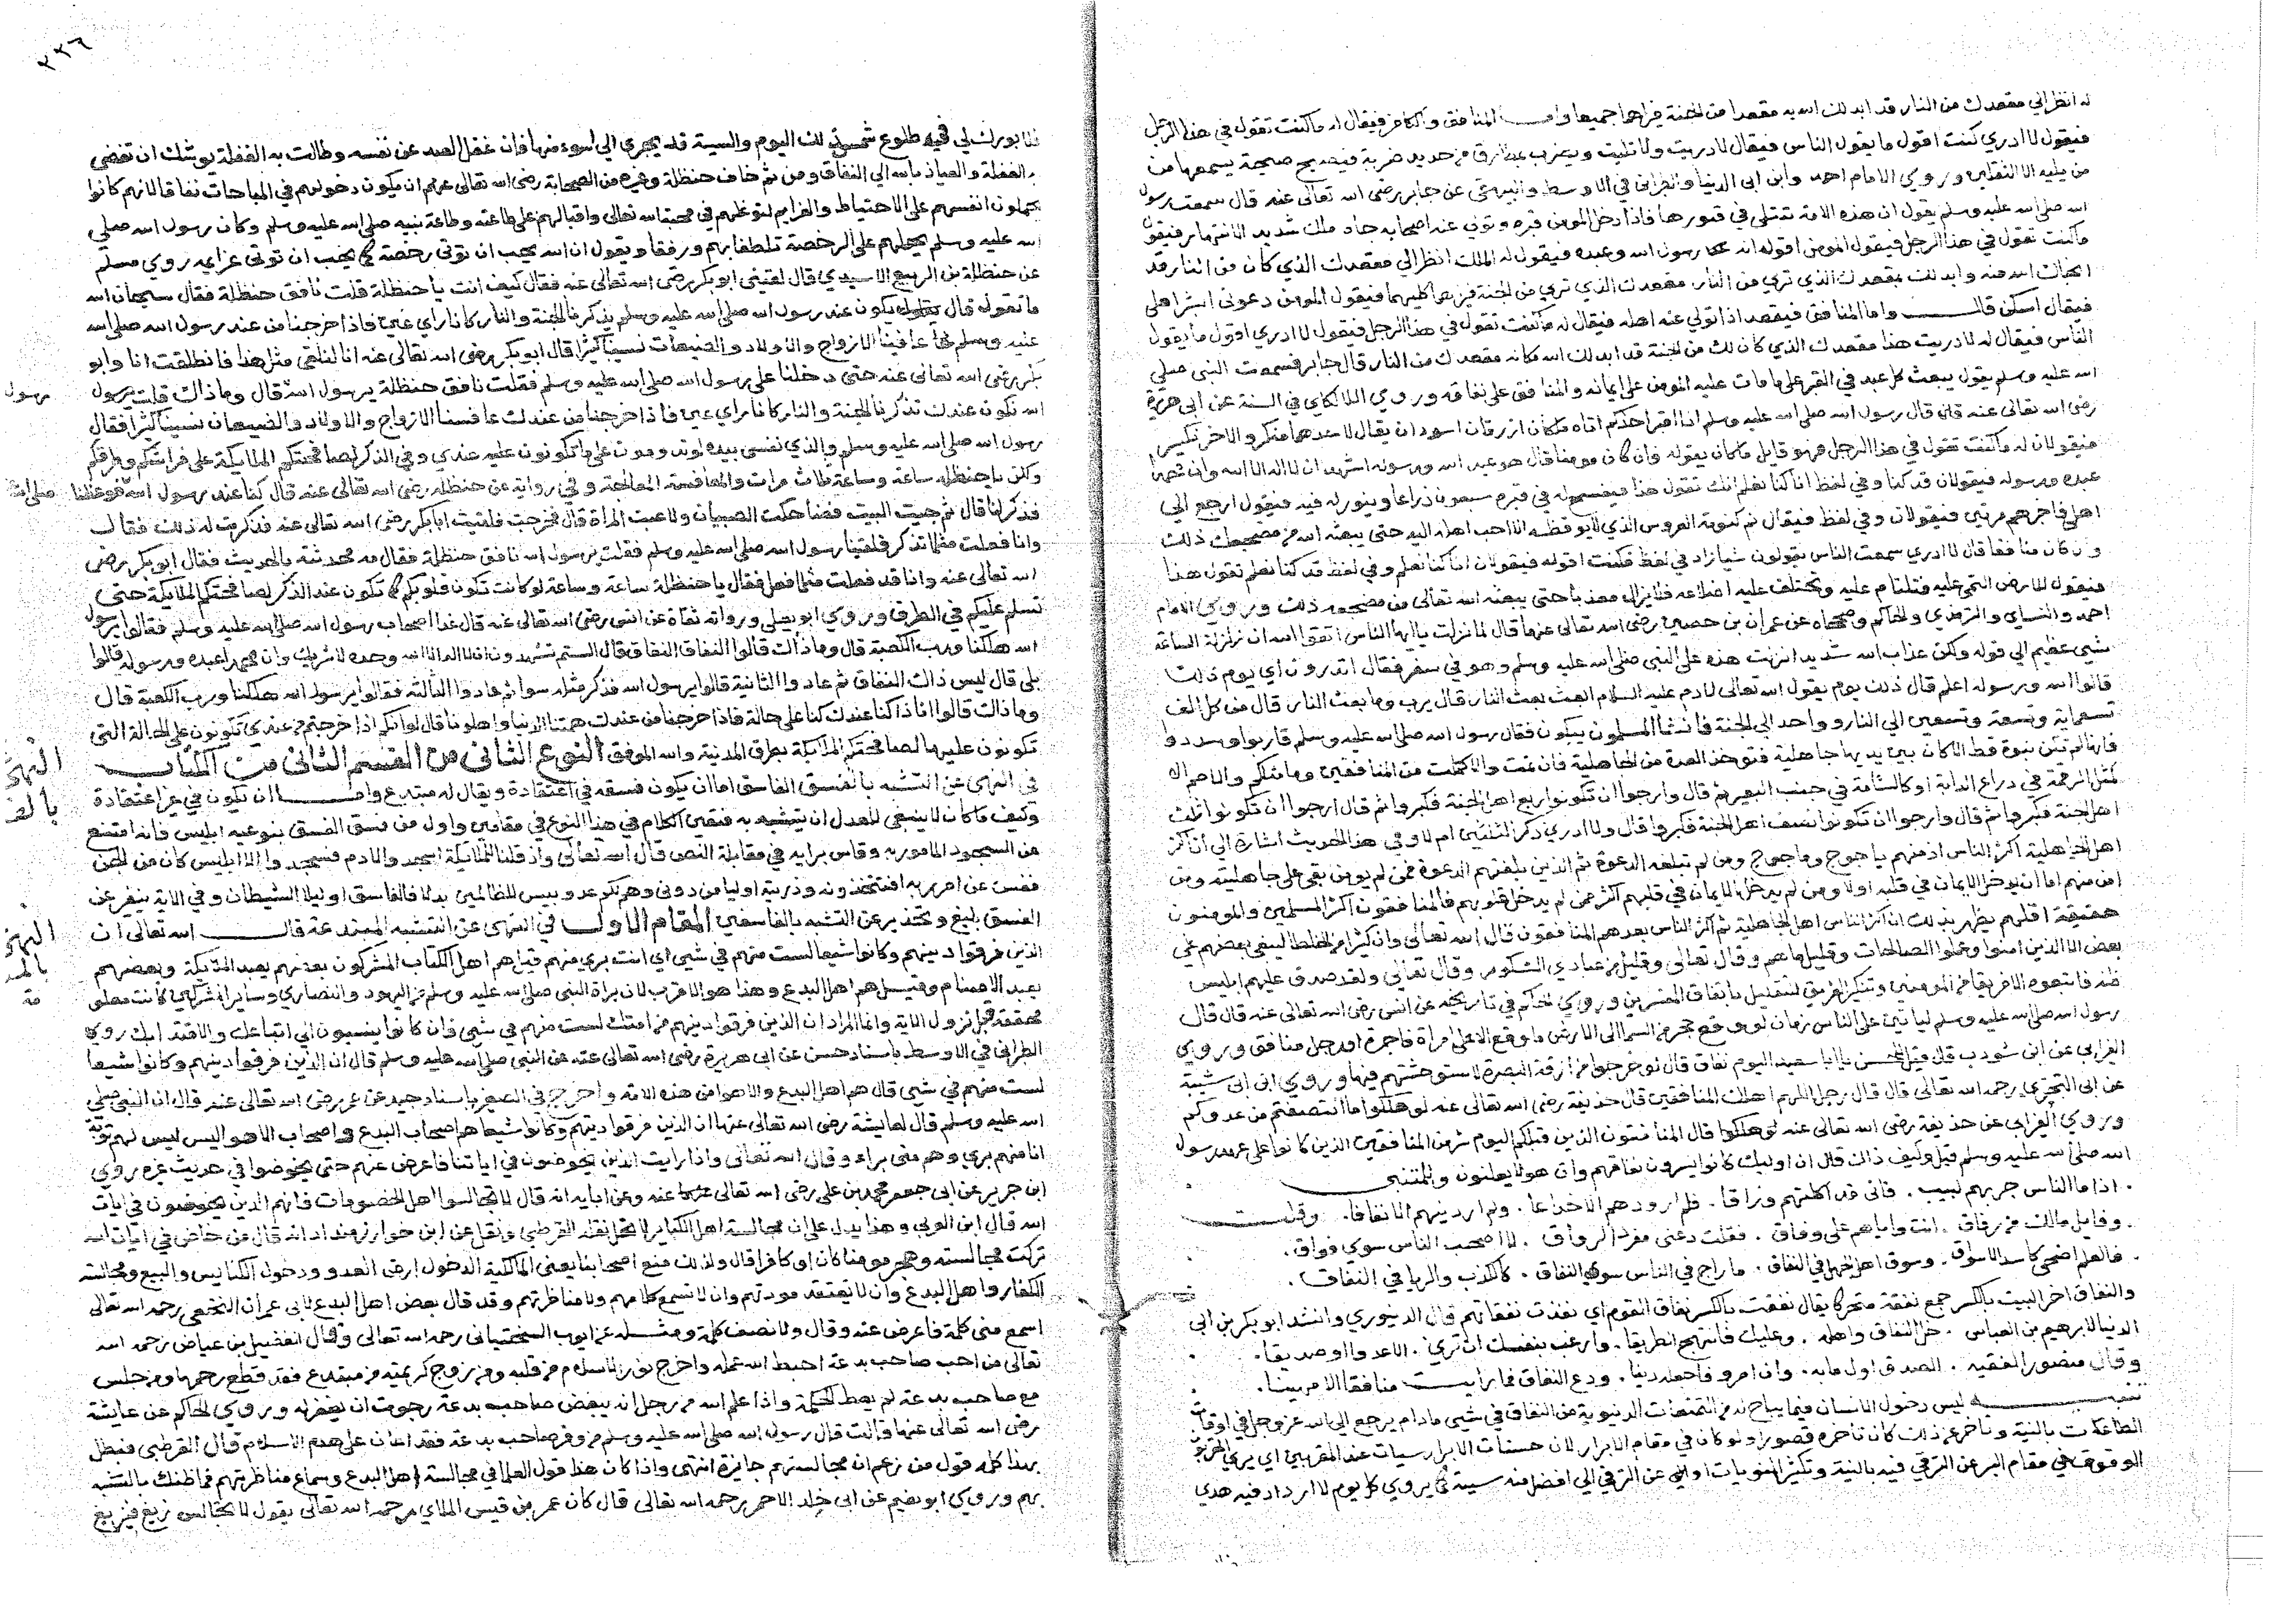 له انظر الي مقعدك من النار قد ابدلك الله به مقعدا من الجنة فيراهما جميعا واما المنافق والكافر فيقال له ما كنت تقول في هذا الرجل
فيقول لا ادري كنت اقول ما يقول الناس فيقال لا دريت ولا تليت ويضرب بمطارق من حديد ضربة فيصيح صيحة يسمعها من
من يليه الا الثقلين وروي الامام احمد وابن ابي الدنيا والطبراني في الاوسط والبيهقي عن جابر رضي الله تعالى عنه قال سمعت رسول
الله صلي الله عليه وسلم يقول ان هذه الامة تبتلي في قبورها فاذا دخل المومن قبره وتولي عنه اصحابه جاه ملك شديد الانتهار فيقول
ما كنت تقول في هذا الرجل فيقول المومن اقول انه رسول الله وعبده فيقول له الملك انظر الي مقعدك الذي كان من النار قد
انجاك الله منه وابدلك بمقعدك الذي تري من النار مقعدك الذي تري من الجنة فيراهما كليهما فيقول المومن دعوني ابشر اهلي
فيقال اسكن قال واما المنافق فيقعد اذا تولي عنه اهله فيقال له ما كنت تقول في هذا الرجل فيقول لا ادري اقول ما يقول
الناس فيقال له لا دريت هذا مقعدك الذي كان لك من الجنة قد ابدلك الله مكانه مقعدك من النار قال جابر فسمعت النبي صلي
الله عليه وسلم يقول يبعث كل عبد في القبر علي ما مات عليه المومن علي ايمانه والمنافق علي نفاقه وروي اللالكاي في السنة عن ابي هريرة
رضي الله تعالى عنه قال قال رسول الله صلي الله عليه وسلم اذا اقبر احدكم اتاه ملكان ازرقان اسودان يقال لاحدهما منكر والاخر نكير
فيقولان له ما كنت تقول في هذا الرجل فهو قايل ما كان يقوله وان كان مومنا قال هو عبد الله ورسوله اشهد ان لا اله الا الله وان محمدا
عبده ورسوله فيقولان قد كنا وفي لفظ انا كنا نعلم انك تقول هذا فيفسح له في قبره سبعون ذراعا وينور له فيه فيقول ارجع الي
اهلي فاخبرهم مرتين فيقولان وفي لفظ فيقال نم كنومة العروس الذي لا يوقظه الا احب اهله اليه حتى يبعثه الله من مضجعه ذلك
وان كان منافقا قال لا ادري سمعت الناس يقولون شيا زاد في لفظ فكنت اقوله فيقولان انا كنا نعلم وفي لفظ قد كنا نعلم تقول هذا
فيقول للارض التمي عليه فتلتام عليه وتختلف عليه اضلاعه فلا يزال معذبا حتى يبعثه الله تعالى من مضجعه ذلك وروي الامام
احمد والنساي والترمذي والحاكم وصححاه عن عمران بن حصين رضي الله تعالى عنهما قال لما نزلت يا ايها الناس اتقوا الله ان زلزلة الساعة
شيي عظيم الي قوله ولكن عذاب الله شديد انزلت هذه علي النبي صلي الله عليه وسلم وهو في سفر فقال اتدرون اي يوم ذلك
قالوا الله ورسوله اعلم قال ذلك يوم يقول الله تعالى لادم عليه السلام ابعث بعث النار قال يرب وما بعث النار قال من كل الف
تسعماية وتسعة وتسعين الي النار وواحد الي الجنة فانشا المسلمون يبكون فقال رسول الله صلي الله عليه وسلم قاربوا وسددوا
فانها لم تكن نبوة قط الا كان بين يديها جاهلية فتوخذ العدة من الجاهلية فان تمت والا كملت من المنافقين وما مثلكم والامم الا
كمثل الرقمة في ذراع الدابة او كالشامة في جنب البعير ثم قال وارجوا ان تكونوا ربع اهل الجنة فكبروا ثم قال ارجوا ان تكونوا ثلث
اهل الجنة فكبروا ثم قال وارجوا ان تكونوا نصف اهل الجنة فكبروا قال ولا ادري ذكر الثلثين ام لا وفي هذا الحديث اشارة الي ان اكثر
اهل الجاهلية اكثر الناس اذ منهم ياجوج وماجوج ومن لم تبلغه الدعوة ثم الذين بلغتهم الدعوة فمن لم يومن بقي علي جاهليته ومن
امن منهم اما ان يدخل الايمان في قلبه اولا ومن لم يدخل الايمان في قلبهم اكثر ممن لم يدخل قلوبهم فالمنافقون اكثر المسلمين والمومنون
حقيقة اقلهم يظهر بذلك ان اكثر الناس اهل الجاهلية ثم اكثر الناس بعدهم المنافقون قال الله تعالى وان كثيرا من الخلطا ليبغي بعضهم علي
بعض الا الذين امنوا وعملوا الصالحات وقليل ما هم وقال تعالى وقليل من عبادي الشكور وقال تعالى ولقد صدق عليهم ابليس
ظنه فاتبعوه الا فريقا من المومنين وتنكير الفريق للتقليل باتفاق المفسرين وروي الحاكم في تاريخه عن انس رضي الله تعالى عنه قال قال
رسول الله صلي الله عليه وسلم لياتين علي الناس زمان لو وقع حجر من السما الى الارض ما وقع الا علي امراة فاجرة او رجل منافق وروي
الفريابي عن ابن شوذب قال قيل للحسن يا ابا سعيد اليوم نفاق قال لو خرجوا من ازقة البصرة لاستوحشتم فيها وروي ابن ابي شيبة
عن ابي البختري رحمه الله تعالى قال قال رجل اللهم اهلك المنافقين قال حذيفة رضي الله تعالى عنه لو هلكوا ما انتصفتم من عدوكم
وروي الفريابي عن حذيفة رضي الله تعالى عنه قال المنافقون الذين فيكم اليوم شر من المنافقين الذين كانوا علي عهد رسول
الله صلي الله عليه وسلم قيل وكيف ذاك قال ان اوليك كانوا يسرون نفاقهم وان هولا يعلنون وللمتنبي
اذا ما الناس جربهم لبيب . فاني قد اكلتهم وذاقا . فلم ار ودهم الا خداعا . ولم ار دينهم الا نفاقا . وقلت
وقايل مالك من رفاق . انت واياهم علي وفاق . فقلت دعني مفرد الرواق . لا اصحب الناس سوي فواق .
فالعلم اضحي كاسد الاسواق . وسوق اهل الجهل في النفاق . ما راج في الناس سوي النفاق . كالكذب والريا في النفاق .
والنفاق اخر البيت بالكسر جمع نفقة متحركا يقال نفقت بالكسر نفاق القوم اي نفدت نفقاتهم قال الدينوري وانشد ابو بكر بن ابي
الدنيا لابرهيم بن العباس . خل النفاق واهله . وعليك فانتهج الطريقا . وارغب بنفسك ان تري . الا عدوا او صديقا .
وقال منصور الفقيه . الصدق اولي مابه . وان امرو فاجعله دينا . ودع النفاق فما رايت منافقا الا مهينا .
تنبيه ليس دخول الانسان فيما يباح له من التمتعات الدنيوية من النفاق في شيي مادام يرجع الي الله عز وجل في اوقات
الطاعات بالنية وتاخر عن ذلك كان تاخره قصورا ولو كان في مقام الابرار لان حسنات الابرار سيات عند المقربين اي يري المقرب
الوقوف في مقام البر عن الترقي فيه بالنية وتكثير المنويات او الني عن الترقي الي افضل منه سيئة كما يروي كل يوم لا ازداد فيه هدي
٢٢٦
فلا بورك لي في طلوع شمس ذلك اليوم والسيية قد يجري الي اسوء منها فان غفل العبد عن نفسه وطالت به الغفلة يوشك ان تفضي
به الغفلة والعياذ بالله الي النفاق ومن ثم خاف حنظلة وغيره من الصحابة رضي الله تعالى عنهم ان يكون دخولهم في المباحات نفاقا لانهم كانوا
يحملون انفسهم علي الاحتياط والعزايم لتوغلهم في محبة الله تعالى واقبالهم علي طاعته وطاعة نبيه صلي الله عليه وسلم وكان رسول الله صلي
الله عليه وسلم يحملهم علي الرخصة تلطفا بهم ورفقا ويقول ان الله يحب ان توتي رخصه كما يحب ان توتي عزايمه روي مسلم
عن حنظلة بن الربيع الاسيدي قال لقيني ابو بكر رضي الله تعالى عنه فقال كيف انت يا حنظلة قلت نافق حنظلة فقال سبحان الله
ما تقول قال يكون عند رسول الله صلي الله عليه وسلم يذكرنا الجنة والنار كانا راي عين فاذا خرجنا من عند رسول الله صلي الله
عليه وسلم عافسنا الازواج والاولاد والضيعات نسينا كثيرا قال ابو بكر رضي الله تعالى عنه انا لنلقي مثل هذا فانطلقت انا وابو
بكر رضي الله تعالى عنه حتى دخلنا علي رسول الله صلي الله عليه وسلم فقلت نافق حنظلة يرسول الله قال وما ذاك قلت يرسول
الله نكون عندك تذكرنا الجنة والنار كانا راي عين فاذا خرجنا من عندك عافسنا الازواج والاولاد والضيعات نسينا كثيرا فقال
رسول الله صلي الله عليه وسلم والذي نفسي بيده لو تدومون علي ما تكونون عليه عندي وفي الذكر لصافحتكم الملايكة علي فراشكم وطرقكم
ولكن يا حنظلة ساعة وساعة ثلاث مرات والمعافسة المعالجة وفي رواية عن حنظلة رضي الله تعالى عنه قال كنا عند رسول الله فوعظنا
فذكرنا قال ثم جيت البيت فضاحكت الصبيان ولاعبت المراة قال فخرجت فلقيت ابا بكر رضي الله تعالى عنه فذكرت له ذلك فقال
وانا فعلت مثل ما تذكر فلقينا رسول الله صلي الله عليه وسلم فقلت يرسول الله نافق حنظلة فقال مه فحدثته بالحديث فقال ابو بكر رضي
الله تعالى عنه وانا قد فعلت مثل ما فعل فقال يا حنظلة ساعة وساعة لو كانت تكون قلوبكم كما تكون عند الذكر لصافحتكم الملايكة حتى
تسلم عليكم في الطرق وروي ابو يعلي ورواته ثقاة عن انس رضي الله تعالى عنه قال غدا اصحاب رسول الله صلي الله عليه وسلم فقالوا يرسول
الله هلكنا ورب الكعبة قال وما ذاك قالوا النفاق النفاق قال الستم تشهدون ان لا اله الا الله وحده لا شريك وان محمدا عبده ورسوله قالوا
بلي قال ليس ذاك النفاق ثم عادوا الثانية قالوا يرسول الله فذكر مثله سوا ثم عادوا الثالثة فقالوا يرسول الله هلكنا ورب الكعبة قال
وما ذاك قالوا انا اذا كنا عندك كنا علي حالة فاذا خرجنا من عندك همتنا الدنيا واهلونا قال لو انكم اذا خرجتم من عندي تكونون علي الحالة التي
تكونون عليها لصافحتكم الملايكة بطرق المدينة والله الموفق النوع الثاني من القسم الثاني من الكتاب
في النهي عن التشبه بالفسق الفاسق اما ان يكون فسقه في اعتقاده ويقال له مبتدع واما ان يكون في غير اعتقاده
وكيف ما كان لا ينبغي للعدل ان يتشبه به فبقي الكلام في هذا النوع في مقامين واول من فسق الفسق بنوعيه ابليس فانه امتنع
من السجود المامور به وقاس برايه في مقابلة النص قال الله تعالى واذ قلنا للملايكة اسجدوا لادم فسجدوا الا ابليس كان من الجن
ففسق عن امر ربه افتتخذونه وذريته اوليا من دوني وهم لكم عدو وبيس للظالمين بدلا فالفاسق اوليا الشيطان وفي الاية ينفير عن
الفسق بليغ وتحذير عن التشبه بالفاسقين المقام الاول في النهي عن التشبه المبتدعة قال الله تعالى ان
الذين فرقوا دينهم وكانوا شيعا لست منهم في شيي اي انت بري منهم قيل هم اهل الكتاب المشركون بعضهم يعبد الملايكة وبعضهم
يعبد الاصنام وقيل هم اهل البدع وهذا هو الاقرب لان براة النبي صلي الله عليه وسلم من اليهود والنصاري وساير المشركين كانت معلومة
محققة قبل نزول الاية وانما المراد ان الذين فرقوا دينهم من امتك لست منهم في شيي وان كانوا ينسبون الي اتباعك والاقتدا بك روي
الطبراني في الاوسط باسناد حسن عن ابي هريرة رضي الله تعالى عنه عن النبي صلي الله عليه وسلم قال ان الذين فرقوا دينهم وكانوا شيعا
لست منهم في شيي قال هم اهل البدع والاهوا من هذه الامة واخرج في الصغير باسناد جيد عن عمر رضي الله تعالى عنه قال ان النبي صلي
الله عليه وسلم قال لعايشة رضي الله تعالى عنها ان الذين فرقوا دينهم وكانوا شيعا هم اصحاب البدع واصحاب الاهوا ليس لهم توبة
انا منهم بري وهم مني براء وقال الله تعالى واذا رايت الذين يخوضون في اياتنا فاعرض عنهم حتى يخوضوا في حديث غيره روي
ابن جرير عن ابي جعفر محمد بن علي رضي الله تعالى عنهما وعن ابايه انه قال لا تجالسوا اهل الخصومات فانهم الذين يخوضون في ايات
الله قال ابن العربي وهذا يدل علي ان مجالسة اهل الكباير لا تحل نقله القرطبي ونقل عن ابن خوازمنداد انه قال من خاض في ايات الله
تركت مجالسته وهجر مومنا كان او كافرا قال ولذلك منع اصحابنا يعني المالكية الدخول ارض العدو ودخول الكنايس والبيع ومجالسة
الكفار واهل البدع وان لا تعتقد مودتهم وان لا تسمع كلامهم ولا مناظرتهم وقد قال بعض اهل البدع لابي عمران النخعي رحمه الله تعالى
اسمع مني كلمة فاعرض عنه وقال ولا نصف كلمة ومثله عن ايوب السختياني رحمه الله تعالى وقال الفضيل بن عياض رحمه الله
تعالى من احب صاحب بدعة احبط الله عمله واخرج نور الاسلام من قلبه ومن زوج كريمته من مبتدع فقد قطع رحمها ومن جلس
مع صاحب بدعة لم يعط الحكمة واذا علم الله من رجل انه يبغض صاحب بدعة رجوت ان يغفر له وروي الحاكم عن عايشة
رضي الله تعالى عنها قالت قال رسول الله صلي الله عليه وسلم من وقر صاحب بدعة فقد اعان علي هدم الاسلام قال القرطبي فبطل
بهذا كله قول من زعم ان مجالستهم جايزة انتهى واذا كان هذا قول العلما في مجالسة اهل البدع وسماع مناظرتهم فما ظنك بالتشبه
بهم وروي ابو نعيم عن ابي خالد الاحمر رحمه الله تعالى قال كان عمر بن قيس الملاي رحمه الله تعالى يقول لا تجالس زيغ فيزيغ
رسول
صلي الله